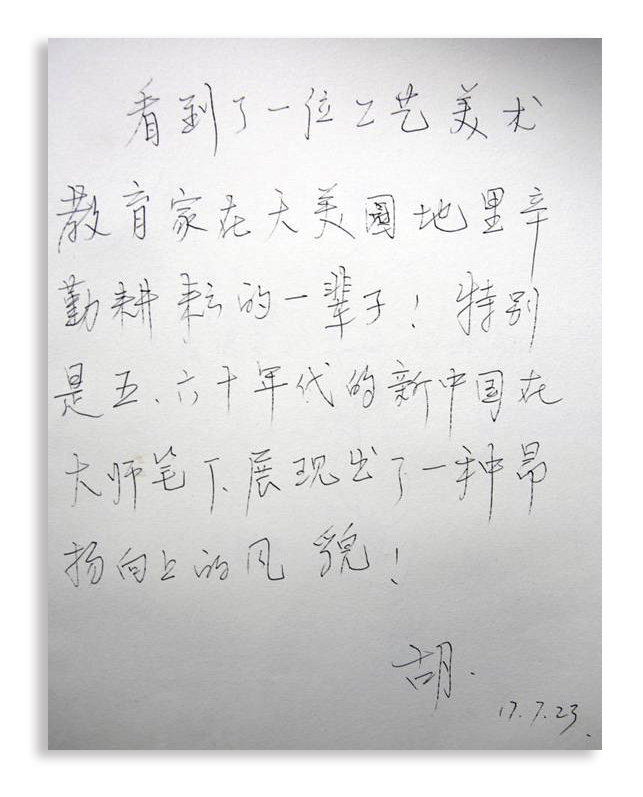 看到了一位工艺美术
教育家在天美園地里辛
勤耕耘的一辈子！特别
是五、六十年代的新中国在
大师笔下展现出了一种昂
扬向上的风貌！
胡.
17.7.23.